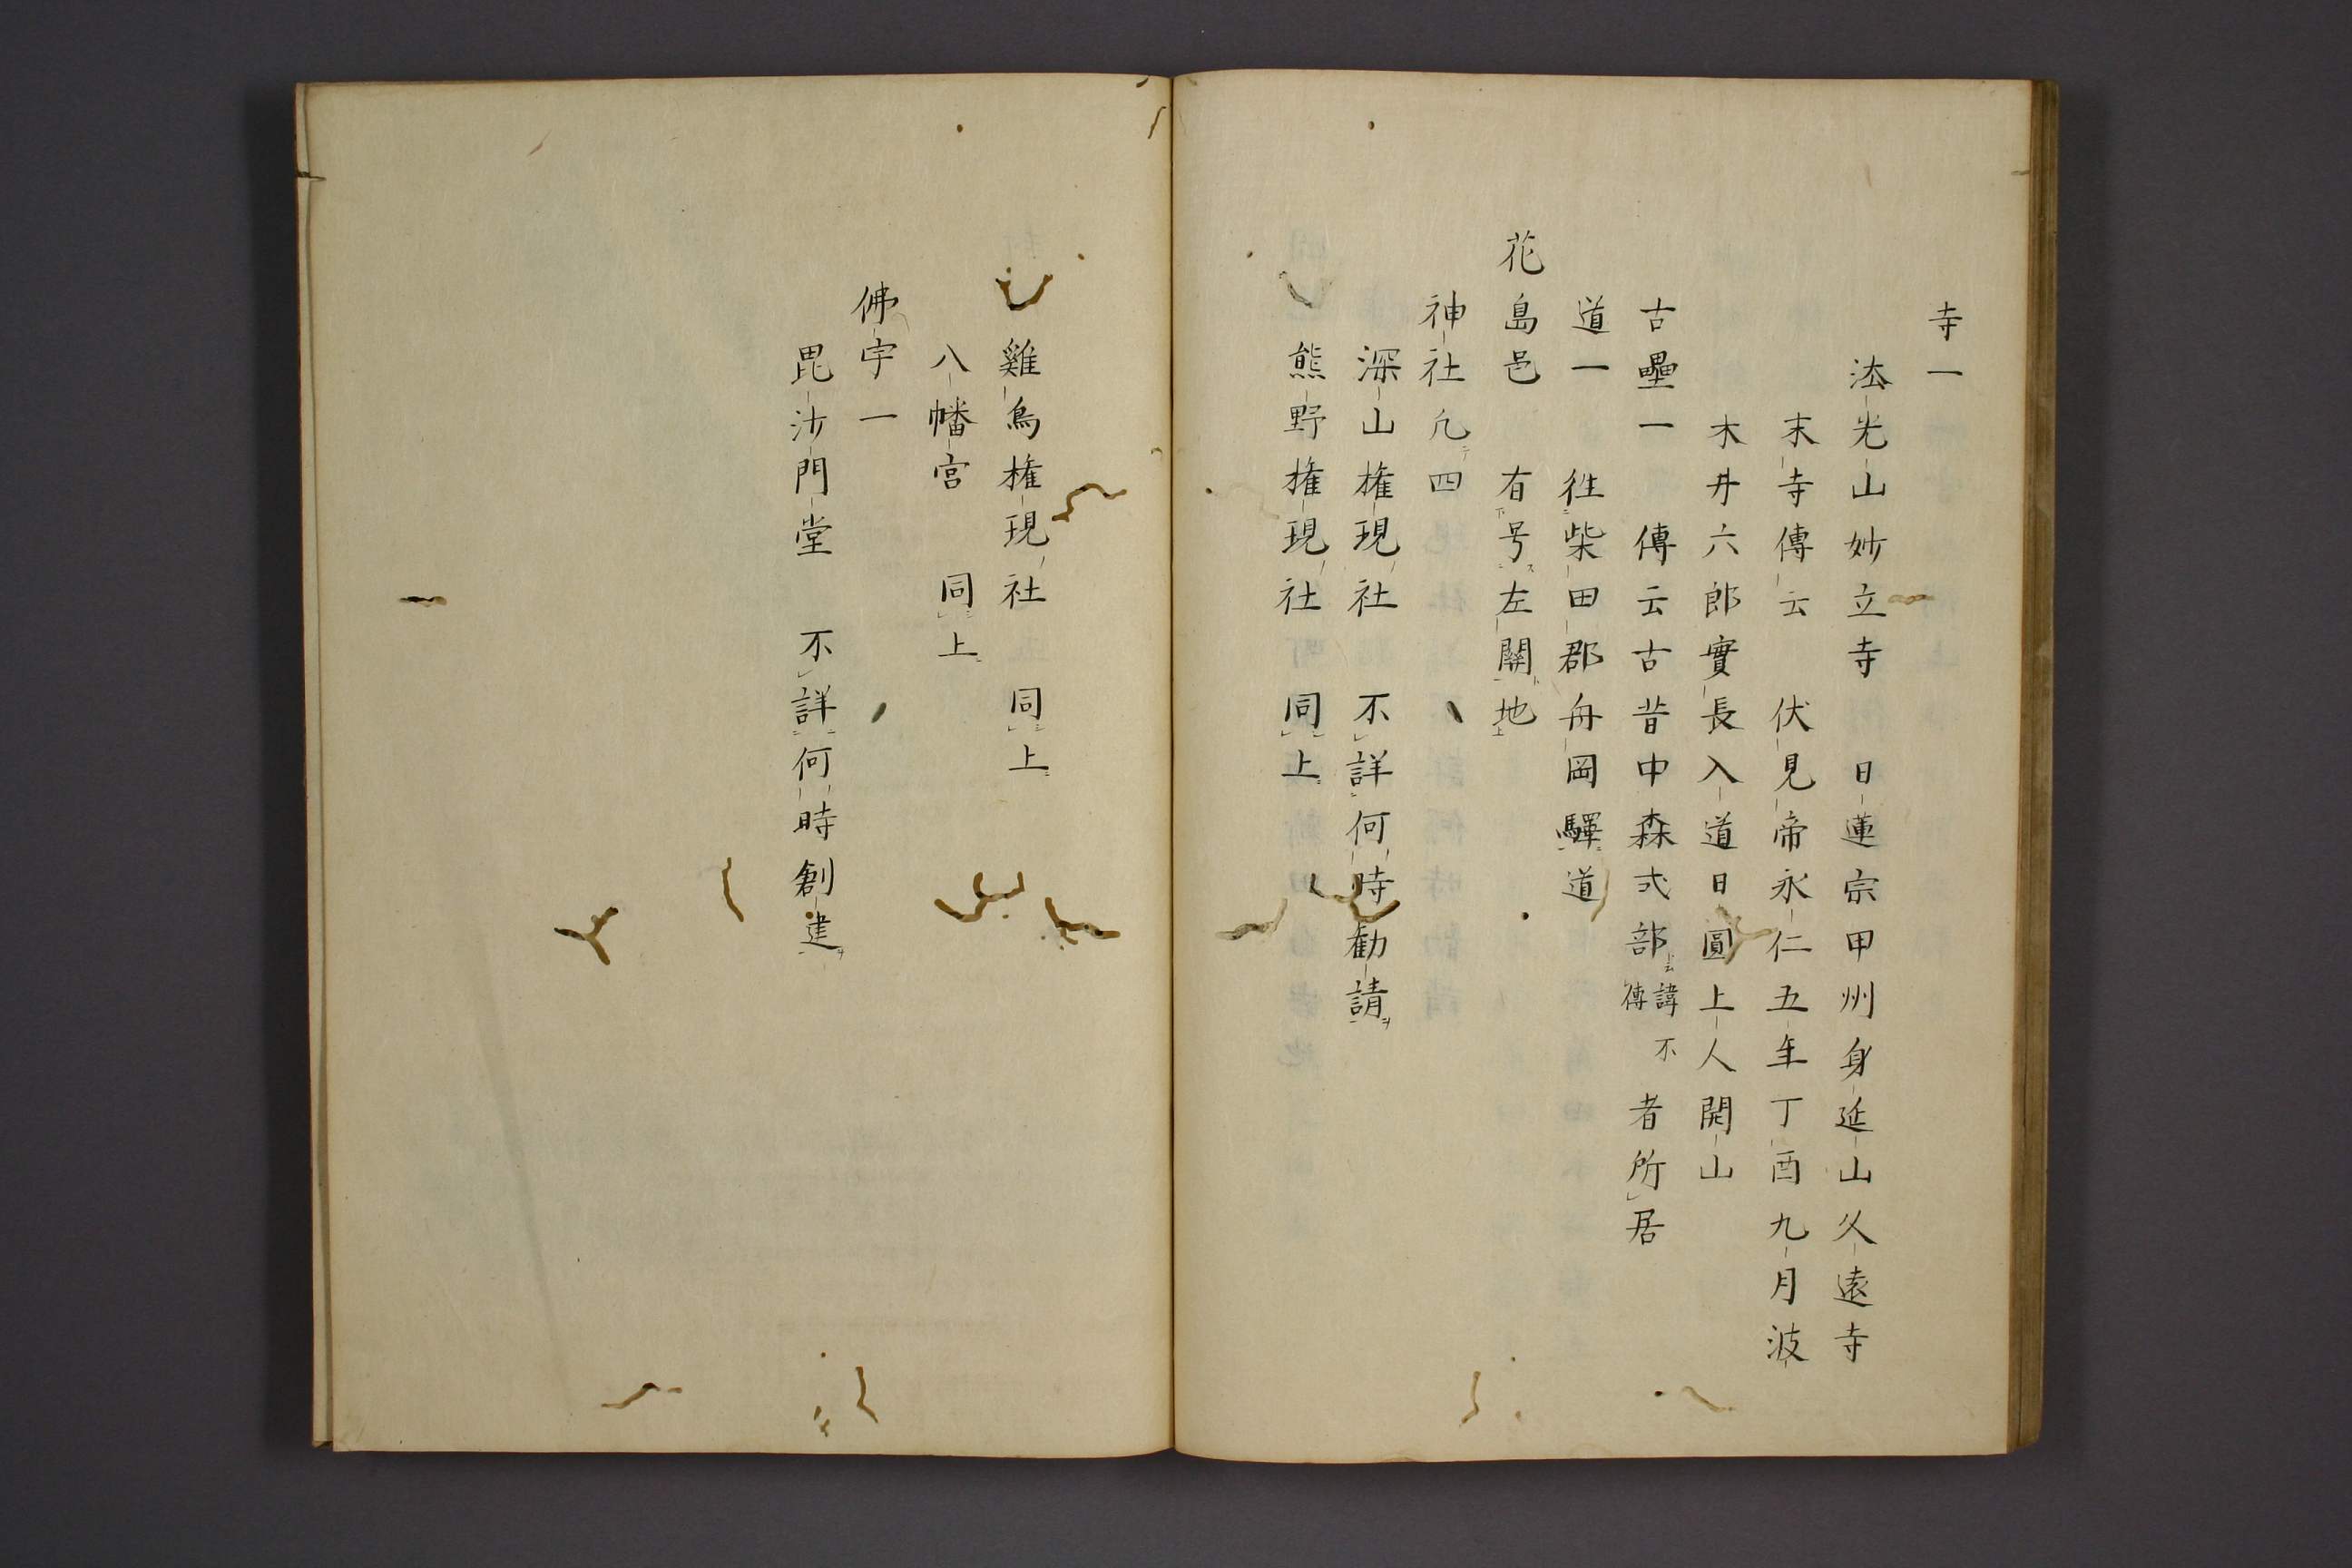 寺一
法光山妙立寺 日蓮宗甲州身延山久遠寺
末寺傳云 伏見帝永仁五年丁酉九月波
木井六郎實長入道日圓上人開山
古壘一 傳云古昔中森式部諱不傳者所居
道一 往柴田郡舟岡驛道
花島邑 有号左關地
神社凡四
深山権現社 不詳何時勸請
熊野権現社 同上
雞鳥権現社 同上
八幡宮 同上
佛宇一
毘沙門堂 不詳何時創建